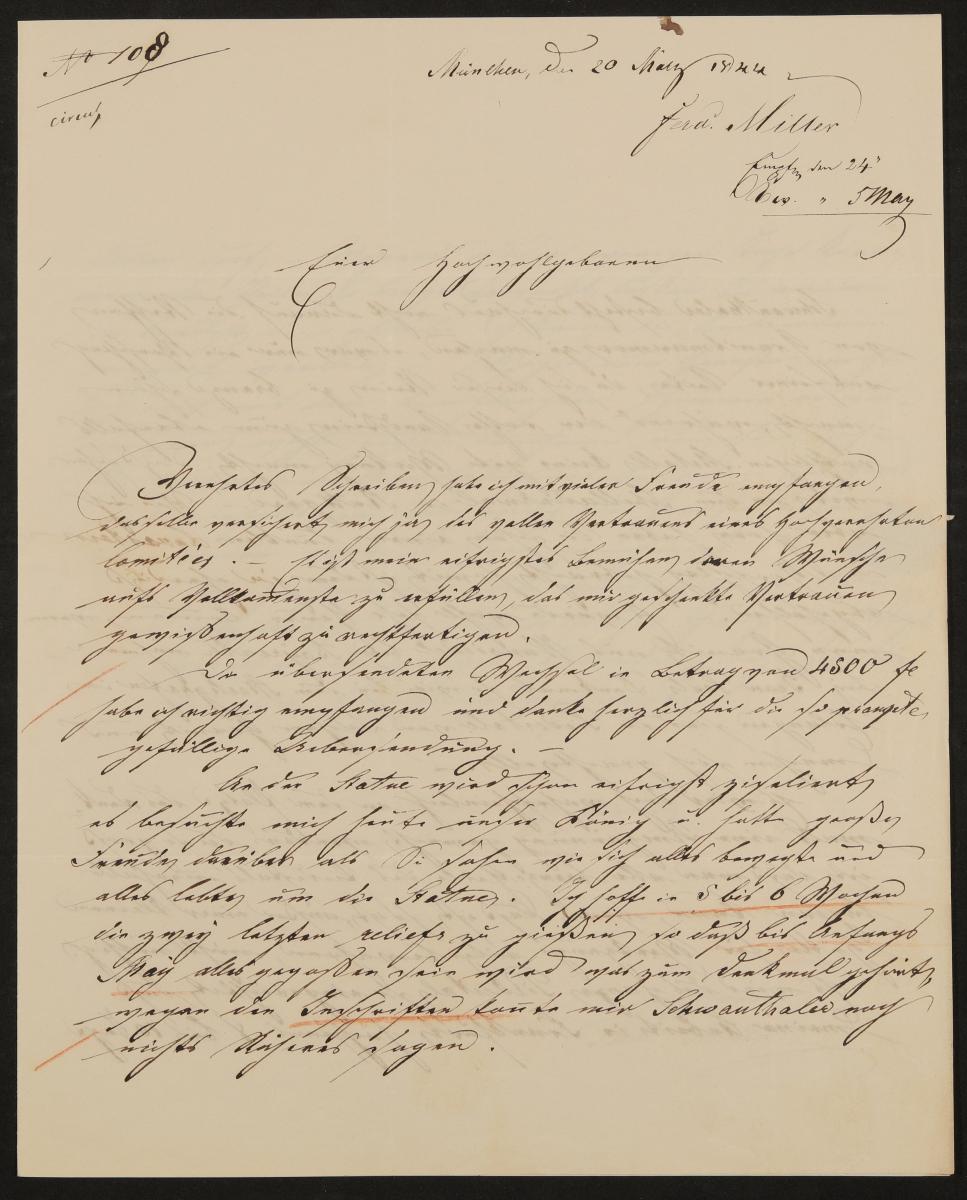 No 108
circul
München, den 20 März 1844
Ferd. Miller
Empf. den 24"
" 5 May
Euer Hochwohlgeboren
Verehrtes Schreiben habe ich mit vieler Freude empfangen,
dasselbe versichert mich ja des vollen Vertrauens eines Hochverehrten
Comitées. – Es ist mein eifrigstes Bemühen deren Wünsche
aufs Vollkomenste zu erfüllen, das mir geschenkte Vertrauen
gewissenhaft zu rechtfertigen.
Den übersendeten Wechsel in Betrag von 4500 fl
habe ich richtig empfangen und danke herzlich für die so prompte
gefällige Uebersendung. –
An der Statue wird schon eifrigst ziseliert
es besuchte mich heute unser König u. hatte große
Freude darüber als Sie sahen wie sich alles bewegte und
alles lebte um die Statue. Ich hoffe in 5 bis 6 Wochen
die zwey letzten reliefs zu gießen so daß bis Anfangs
May alles gegossen sein wird was zum Denkmal gehört,
wegen den Inschriften konte mir Schwanthaler noch
nichts Näheres sagen.